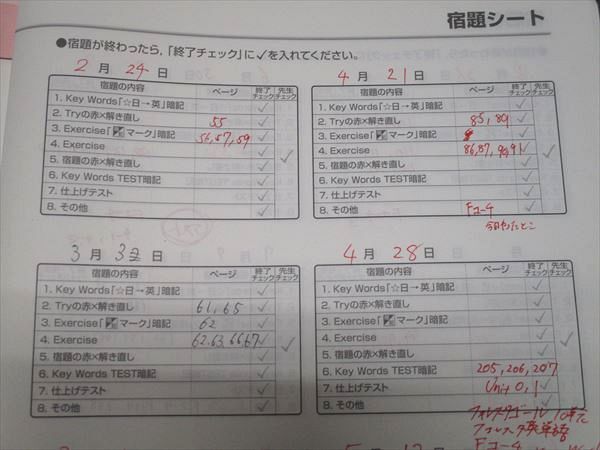 宿題シート
●宿題が終わったら,「終了チェック」に✓を入れてください。
2月24日
宿題の内容 ページ 終了チェック 先生チェック
1. Key Words「☆日→英」暗記 ✓
2. Tryの赤×解き直し 55 ✓
3. Exercise「マーク」暗記 56,57,59 ✓
4. Exercise ✓
5. 宿題の赤×解き直し ✓ ✓
6. Key Words TEST暗記 ✓
7. 仕上げテスト ✓
8. その他 ✓
4月21日
宿題の内容 ページ 終了チェック 先生チェック
1. Key Words「☆日→英」暗記 ✓
2. Tryの赤×解き直し 85,89 ✓
3. Exercise「マーク」暗記 ✓
4. Exercise 86,87,90,91 ✓
5. 宿題の赤×解き直し ✓ ✓
6. Key Words TEST暗記 ✓
7. 仕上げテスト ✓
8. その他 Fコ-4 ✓
今日やったとこ
3月 日
宿題の内容 ページ 終了チェック 先生チェック
1. Key Words「☆日→英」暗記 ✓
2. Tryの赤×解き直し 61,65 ✓
3. Exercise「マーク」暗記 62 ✓
4. Exercise 62,63,66,67 ✓ ✓
5. 宿題の赤×解き直し ✓
6. Key Words TEST暗記 ✓
7. 仕上げテスト ✓
8. その他 ✓
4月28日
宿題の内容 ページ 終了チェック 先生チェック
1. Key Words「☆日→英」暗記 ✓
2. Tryの赤×解き直し ✓
3. Exercise「マーク」暗記 ✓
4. Exercise ✓ ✓
5. 宿題の赤×解き直し ✓
6. Key Words TEST暗記 205,206,207 ✓
7. 仕上げテスト Unit 0,1 ✓
8. その他 ✓
フォレスタゴール
フォレスタ英単語
Fコ-4